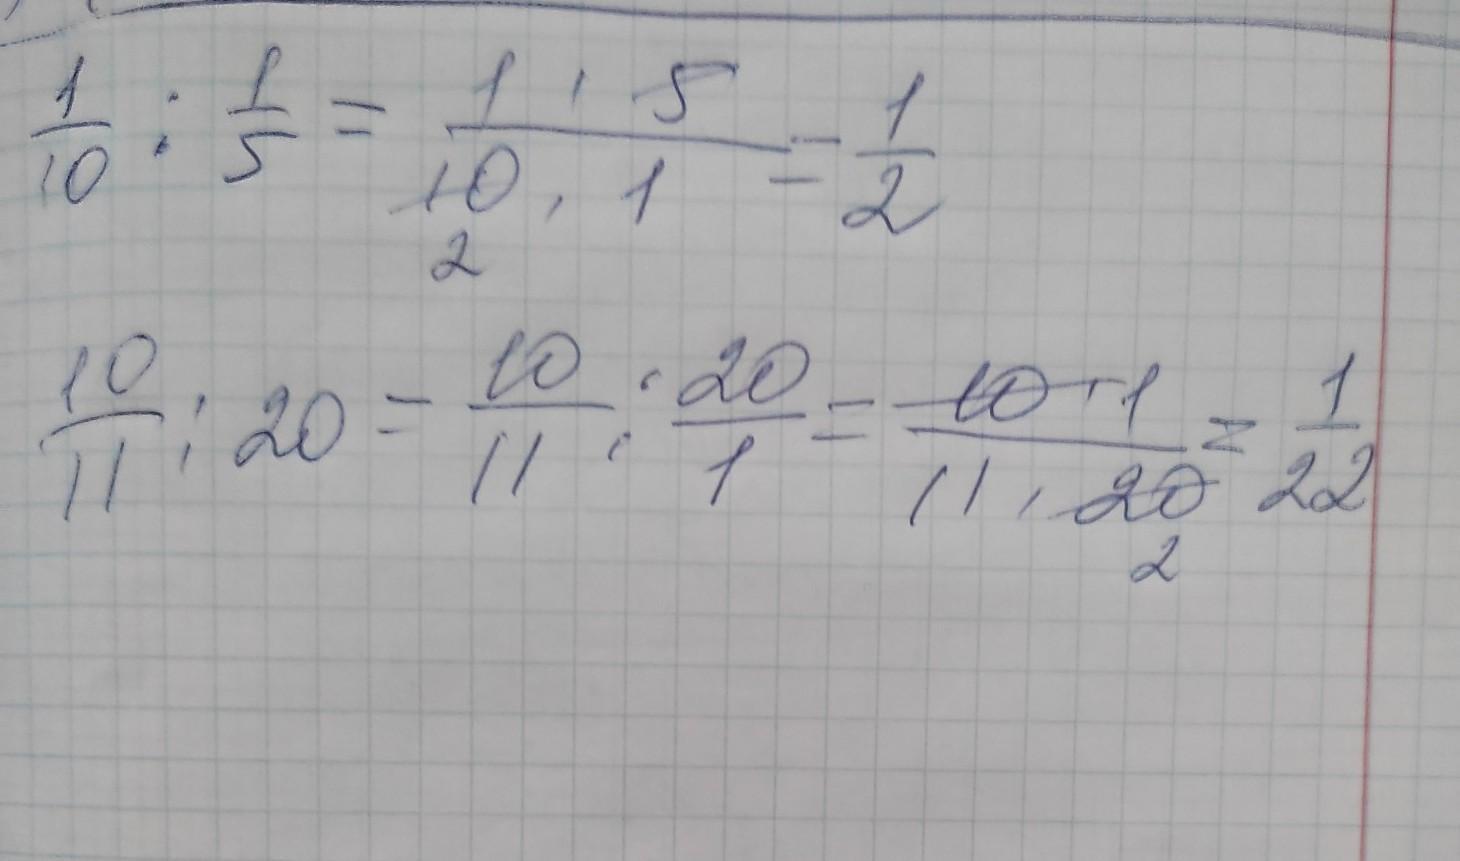 1/10 : 1/5 = 1 · 5 / 10 · 1 = 1/2
2
10/11 : 20 = 10/11 : 20/1 = 10 · 1 / 11 · 20 = 1/22
2